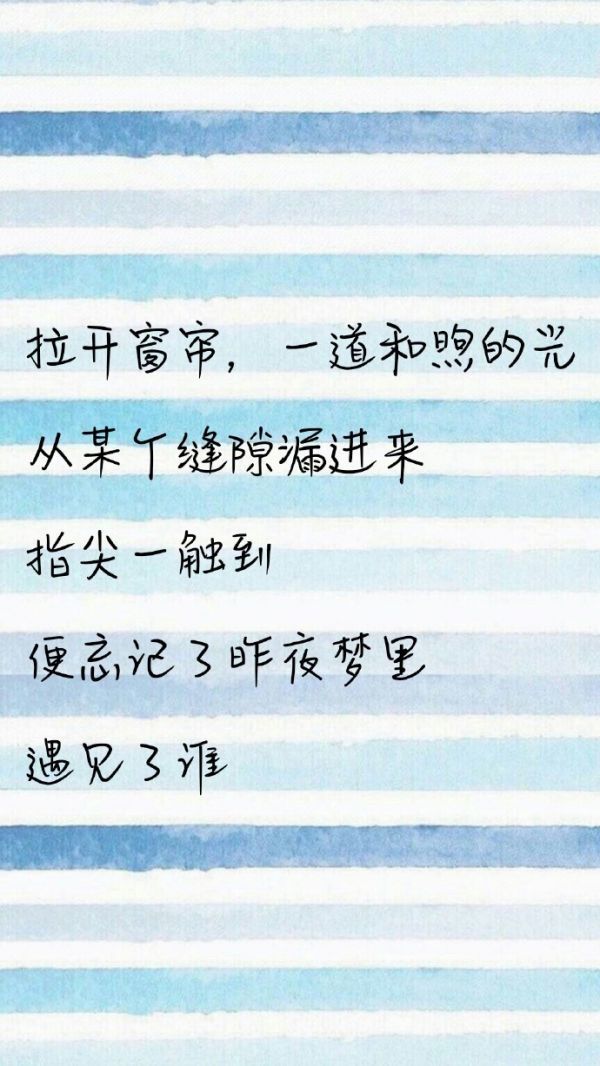 拉开窗帘，一道和煦的光
从某个缝隙漏进来
指尖一触到
便忘记了昨夜梦里
遇见了谁